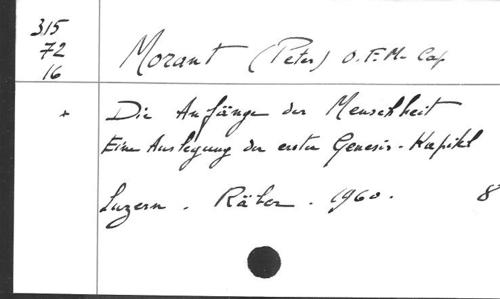 315
72
16
Morant (Peter) O.F.M. Cap
+ Die Anfänge der Menschheit
Eine Auslegung der ersten Genesis-Kapitel
Luzern. Räber. 1960. 8